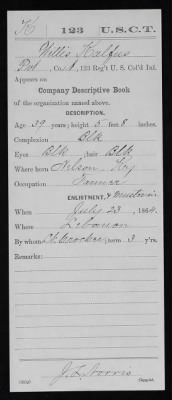 K | 123 | U.S.C.T.
Willis Kalfus
Pvt, Co. A, 123 Reg't U. S. Col'd Inf.
Appears on
Company Descriptive Book
of the organization named above.
DESCRIPTION.
Age 39 years; height 5 feet 8 inches.
Complexion Blk
Eyes Blk ; hair Blk
Where born Nelson, Ky
Occupation Farmer
ENLISTMENT, & Muster in
When July 23, 1864.
Where Lebanon
By whom Lt. ; term 3 y'rs.
Remarks:
J. L. Norris
Copyist.